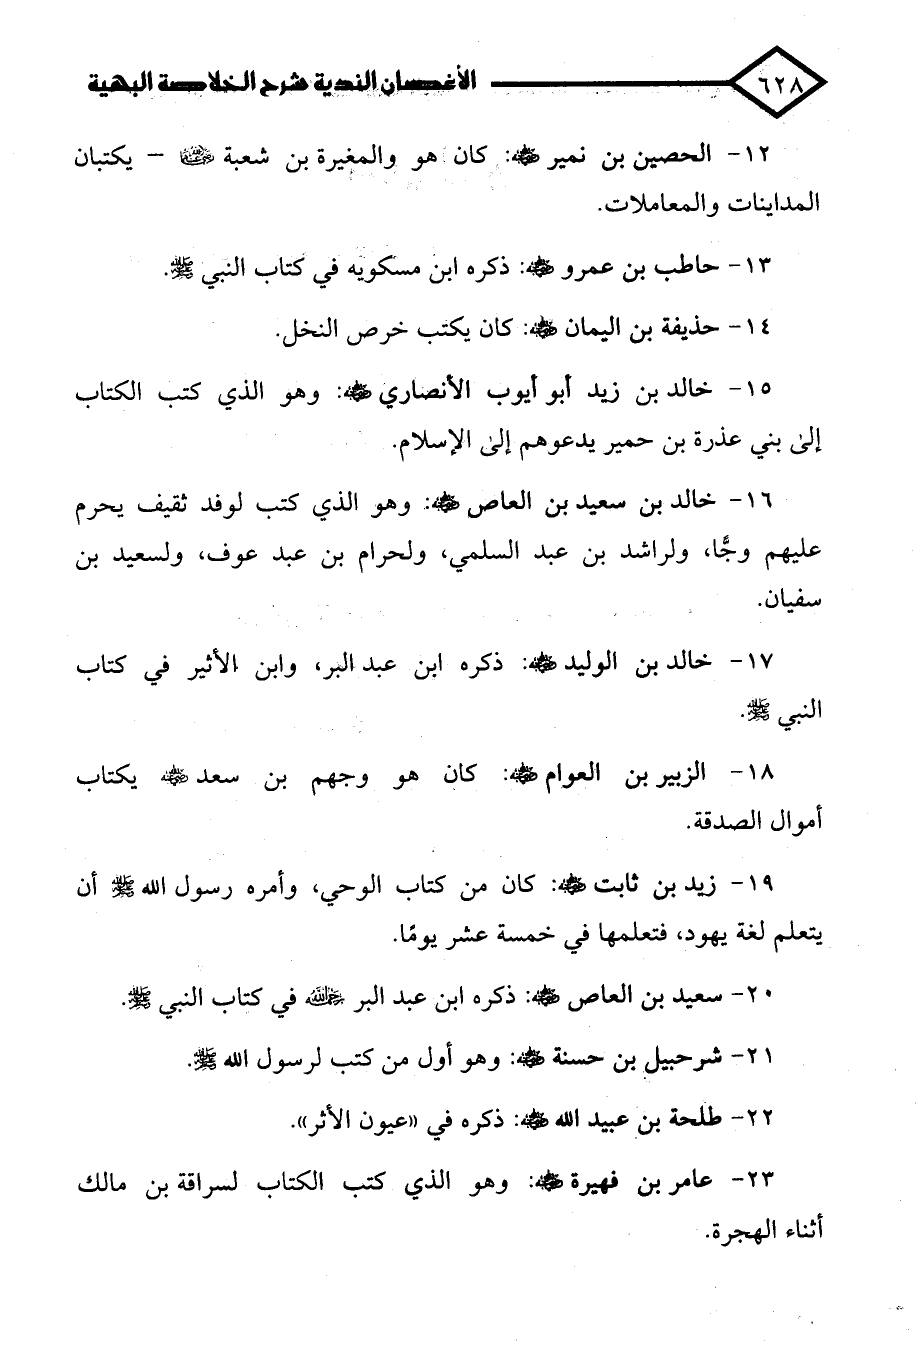 ٦٢٨ الأغصان الندية شرح الخلاصة البهية
١٢- الحصين بن نمير رضي الله عنه: كان هو والمغيرة بن شعبة رضي الله عنهما – يكتبان
المداينات والمعاملات.
١٣- حاطب بن عمرو رضي الله عنه: ذكره ابن مسكويه في كتاب النبي ﷺ.
١٤- حذيفة بن اليمان رضي الله عنه: كان يكتب خرص النخل.
١٥- خالد بن زيد أبو أيوب الأنصاري رضي الله عنه: وهو الذي كتب الكتاب
إلىٰ بني عذرة بن حمير يدعوهم إلىٰ الإسلام.
١٦- خالد بن سعيد بن العاص رضي الله عنه: وهو الذي كتب لوفد ثقيف يحرم
عليهم وجًّا، ولراشد بن عبد السلمي، ولحرام بن عبد عوف، ولسعيد بن
سفيان.
١٧- خالد بن الوليد رضي الله عنه: ذكره ابن عبد البر، وابن الأثير في كتاب
النبي ﷺ.
١٨- الزبير بن العوام رضي الله عنه: كان هو وجهم بن سعد رضي الله عنه يكتاب
أموال الصدقة.
١٩- زيد بن ثابت رضي الله عنه: كان من كتاب الوحي، وأمره رسول الله ﷺ أن
يتعلم لغة يهود، فتعلمها في خمسة عشر يومًا.
٢٠- سعيد بن العاص رضي الله عنه: ذكره ابن عبد البر رحمه الله في كتاب النبي ﷺ.
٢١- شرحبيل بن حسنة رضي الله عنه: وهو أول من كتب لرسول الله ﷺ.
٢٢- طلحة بن عبيد الله رضي الله عنه: ذكره في «عيون الأثر».
٢٣- عامر بن فهيرة رضي الله عنه: وهو الذي كتب الكتاب لسراقة بن مالك
أثناء الهجرة.